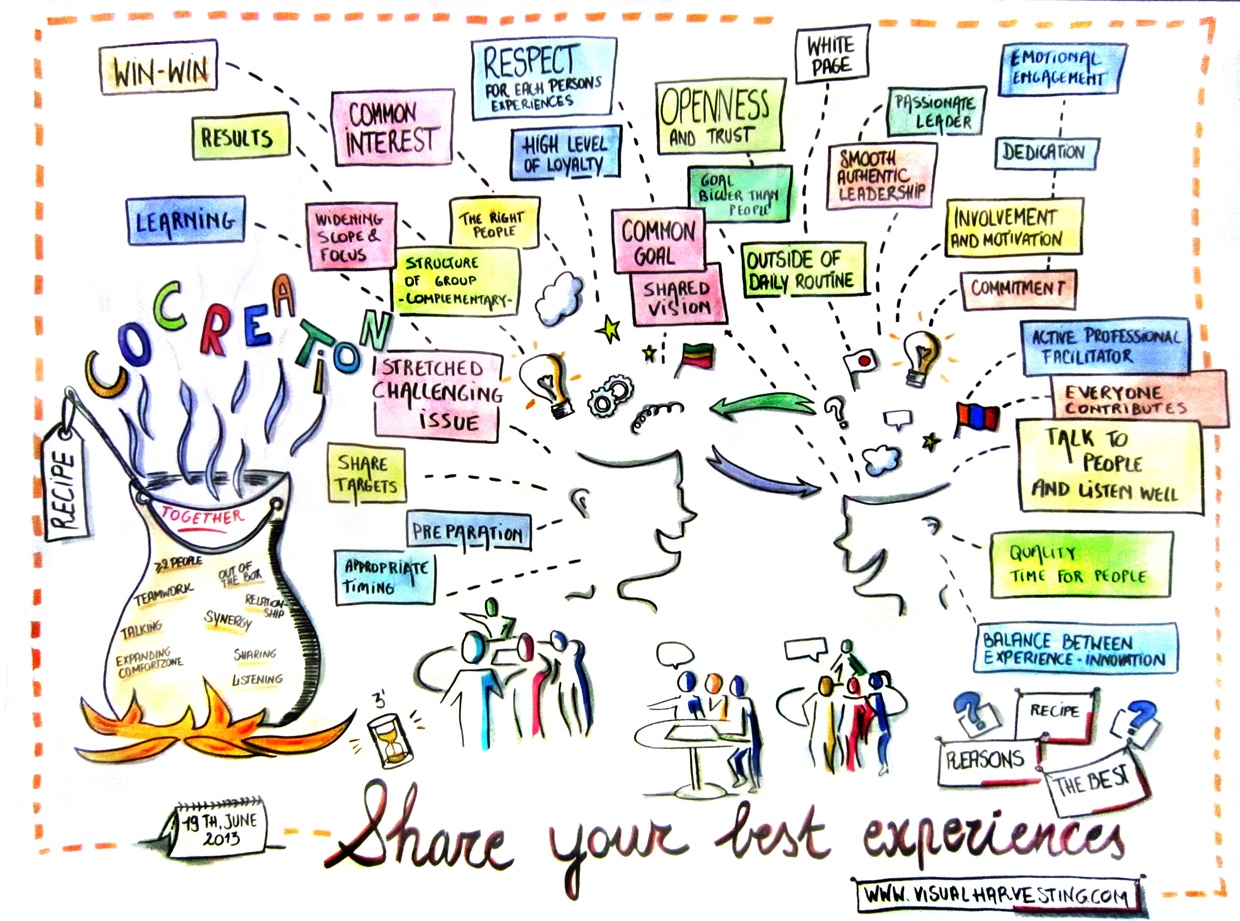 WIN-WIN
RESULTS
LEARNING
COMMON
INTEREST
WIDENING
SCOPE &
FOCUS
RESPECT
FOR EACH PERSONS
EXPERIENCES
HIGH LEVEL
OF LOYALTY
THE RIGHT
PEOPLE
STRUCTURE
OF GROUP
-COMPLEMENTARY-
STRETCHED
CHALLENGING
ISSUE
OPENNESS
AND TRUST
GOAL
BIGGER THAN
PEOPLE
COMMON
GOAL
SHARED
VISION
WHITE
PAGE
OUTSIDE OF
DAILY ROUTINE
PASSIONATE
LEADER
SMOOTH
AUTHENTIC
LEADERSHIP
EMOTIONAL
ENGAGEMENT
DEDICATION
INVOLVEMENT
AND MOTIVATION
COMMITMENT
ACTIVE PROFESSIONAL
FACILITATOR
EVERYONE
CONTRIBUTES
TALK TO
PEOPLE
AND LISTEN WELL
QUALITY
TIME FOR PEOPLE
BALANCE BETWEEN
EXPERIENCE - INNOVATION
SHARE
TARGETS
PREPARATION
APPROPRIATE
TIMING
COCREATION
RECIPE
TOGETHER
≥2 PEOPLE
TEAMWORK
TALKING
EXPANDING
COMFORTZONE
OUT OF
THE BOX
RELATION-
SHIP
SYNERGY
SHARING
LISTENING
3'
?
?
?
RECIPE
REASONS
THE BEST
19TH, JUNE
2013
Share your best experiences
WWW.VISUALHARVESTING.COM